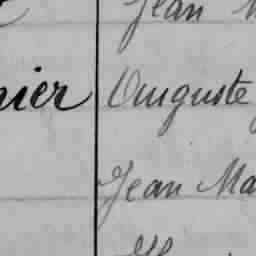 Jean
nier Auguste
Jean Ma